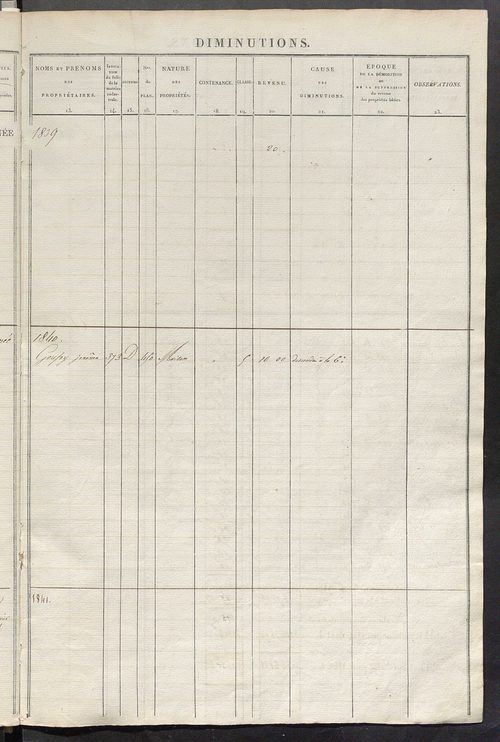 DIMINUTIONS.
NOMS ET PRÉNOMS
DES
PROPRIÉTAIRES.
13.
14.
15.
Nos.
du
PLAN.
16.
NATURE
DES
PROPRIÉTÉS.
17.
CONTENANCE.
18.
CLASSE.
19.
REVENU.
20.
CAUSE
DES
DIMINUTIONS.
21.
EPOQUE
DE LA DÉMOLITION
OU
DE LA SUPPRESSION
du revenu
des propriétés bâties.
22.
OBSERVATIONS.
23.
1839
20.
1840.
373 D 450 Maison 5 10 00
1841.